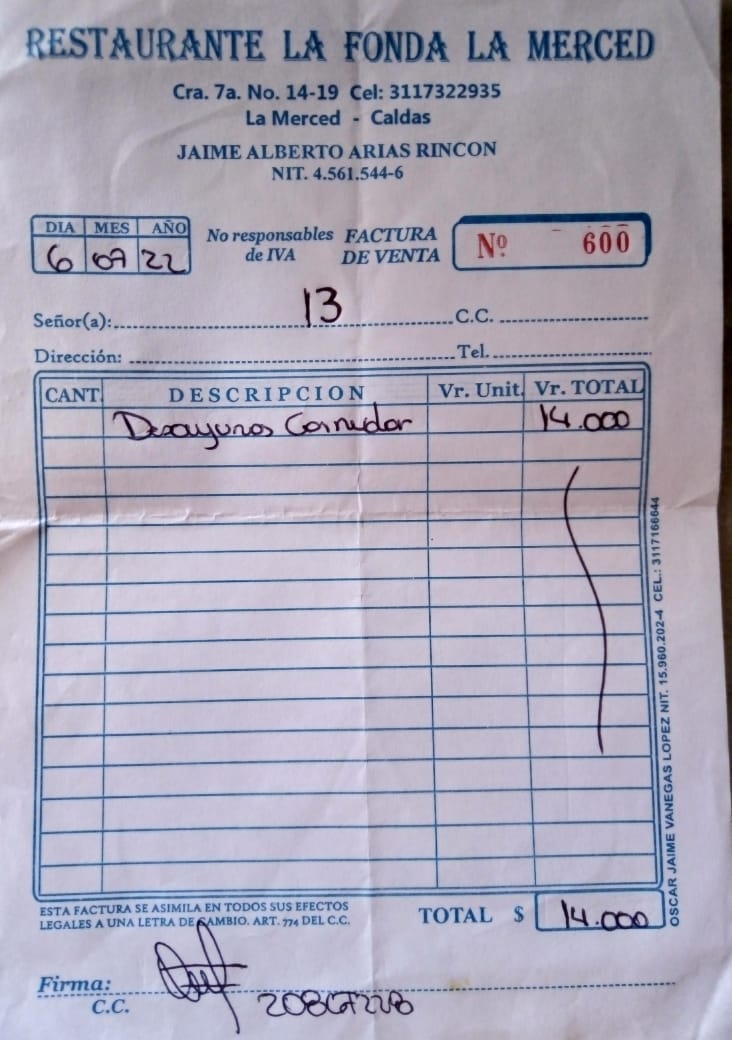 RESTAURANTE LA FONDA LA MERCED
Cra. 7a. No. 14-19 Cel: 3117322935
La Merced - Caldas
JAIME ALBERTO ARIAS RINCON
NIT. 4.561.544-6
DIA MES AÑO
6 07 22
No responsables de IVA
FACTURA DE VENTA
Nº 600
Señor(a): 13 C.C.
Dirección: Tel.
CANT. DESCRIPCION Vr. Unit. Vr. TOTAL
Desayunos Comedor 14.000
OSCAR JAIME VANEGAS LOPEZ NIT. 15.960.202-4 CEL.: 3117166644
ESTA FACTURA SE ASIMILA EN TODOS SUS EFECTOS
LEGALES A UNA LETRA DE CAMBIO. ART. 774 DEL C.C.
TOTAL $ 14.000
Firma:
C.C.